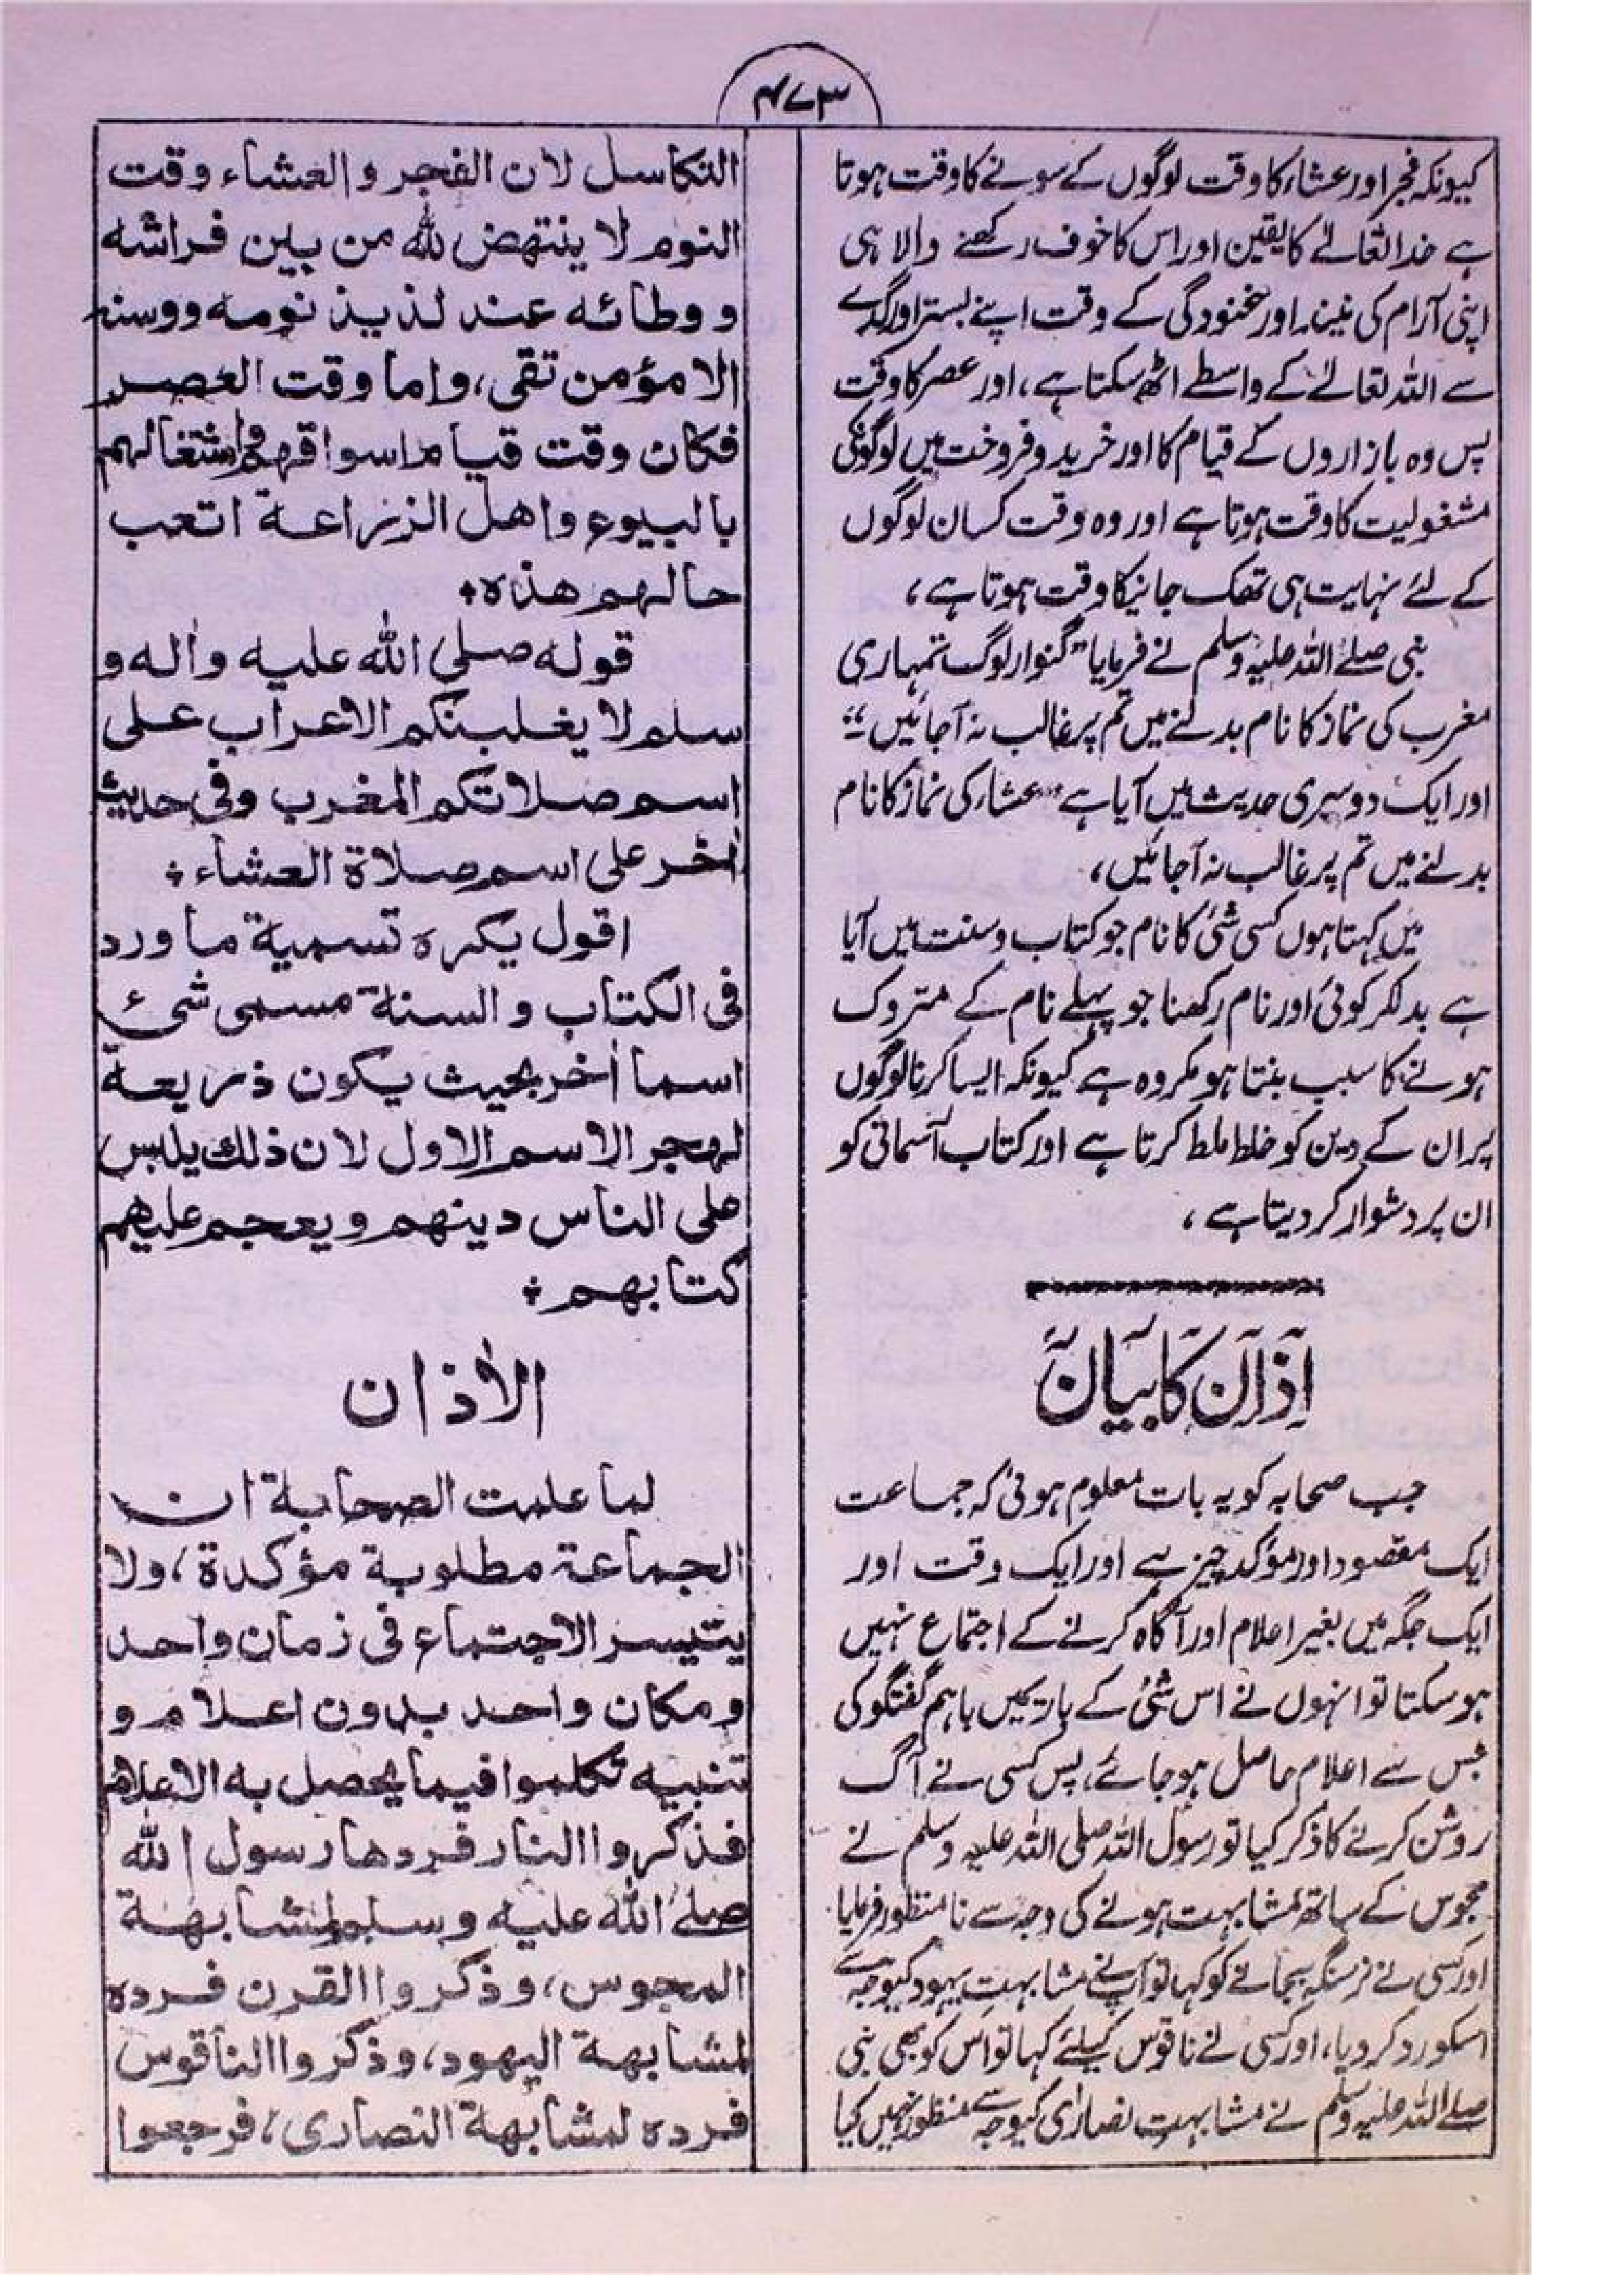 ۴۷۳
کیونکہ فجر اور عشاء کا وقت لوگوں کے سونے کا وقت ہوتا
ہے خدا تعالےٰ کا یقین اور اس کا خوف رکھنے والا ہی
اپنی آرام کی نیند اور غنودگی کے وقت اپنے بستر اور گدے
سے اللہ تعالےٰ کے واسطے اٹھ سکتا ہے، اور عصر کا وقت
پس وہ بازاروں کے قیام کا اور خرید و فروخت میں لوگونکی
مشغولیت کا وقت ہوتا ہے اور وہ وقت کسان لوگوں
کے لئے نہایت ہی تھک جانیکا وقت ہوتا ہے،
نبی صلے اللہ علیہ وسلم نے فرمایا "گنوار لوگ تمہاری
مغرب کی نماز کا نام بدلنے میں تم پر غالب نہ آجائیں"
اور ایک دوسری حدیث میں آیا ہے "عشاء کی نماز کا نام
بدلنے میں تم پر غالب نہ آجائیں،
میں کہتا ہوں کسی شئ کا نام جو کتاب و سنت میں آیا
ہے بدلکر کوئی اور نام رکھنا جو پہلے نام کے متروک
ہونے کا سبب بنتا ہو مکروہ ہے کیونکہ ایسا کرنا لوگوں
پر ان کے دین کو خلط ملط کرتا ہے اور کتاب آسمانی کو
ان پر دشوار کر دیتا ہے،
اذان کا بیان
جب صحابہ کو یہ بات معلوم ہوئی کہ جماعت
ایک مقصود اور مؤکد چیز ہے اور ایک وقت اور
ایک جگہ میں بغیر اعلام اور آگاہ کرنے کے اجتماع نہیں
ہو سکتا تو انہوں نے اس شئ کے بارے میں باہم گفتگو کی
جس سے اعلام حاصل ہو جائے، پس کسی نے آگ
روشن کرنے کا ذکر کیا تو رسول اللہ صلی اللہ علیہ وسلم نے
مجوس کے ساتھ مشابہت ہونے کی وجہ سے نامنظور فرمایا
اور کسی نے نرسنگہ بجانے کو کہا تو آپ نے مشابہت یہود کیوجہ سے
اسکو رد کر دیا، اور کسی نے ناقوس کیلئے کہا تو اس کو بھی نبی
صلے اللہ علیہ وسلم نے مشابہت نصاریٰ کیوجہ سے منظور نہیں کیا
التکاسل لان الفجر والعشاء وقت
النوم لا ینتهض لله من بین فراشه
ووطائه عند لذیذ نومه ووسنه
الا مؤمن تقی، واما وقت العصر
فکان وقت قیام اسواقهم واشتغالهم
بالبیوع واهل الزراعة اتعب
حالهم هذه ٭
قوله صلی الله علیه واٰله و
سلم لا یغلبنکم الاعراب علی
اسم صلاتکم المغرب وفی حدیث
اٰخر علی اسم صلاة العشاء ٭
اقول یکره تسمیة ما ورد
فی الکتاب والسنة مسمی شیء
اسما اٰخر بحیث یکون ذریعة
لهجر الاسم الاول لان ذلك یلبس
علی الناس دینهم ویعجم علیهم
کتابهم ٭
الاذان
لما علمت الصحابة ان
الجماعة مطلوبة مؤکدة، ولا
یتیسر الاجتماع فی زمان واحد
ومکان واحد بدون اعلام و
تنبیه تکلموا فیما یحصل به الاعلام
فذکروا النار فردها رسول الله
صلے الله علیه وسلم لمشابهة
المجوس، وذکروا القرن فرده
لمشابهة الیهود، وذکروا الناقوس
فرده لمشابهة النصاری، فرجعوا